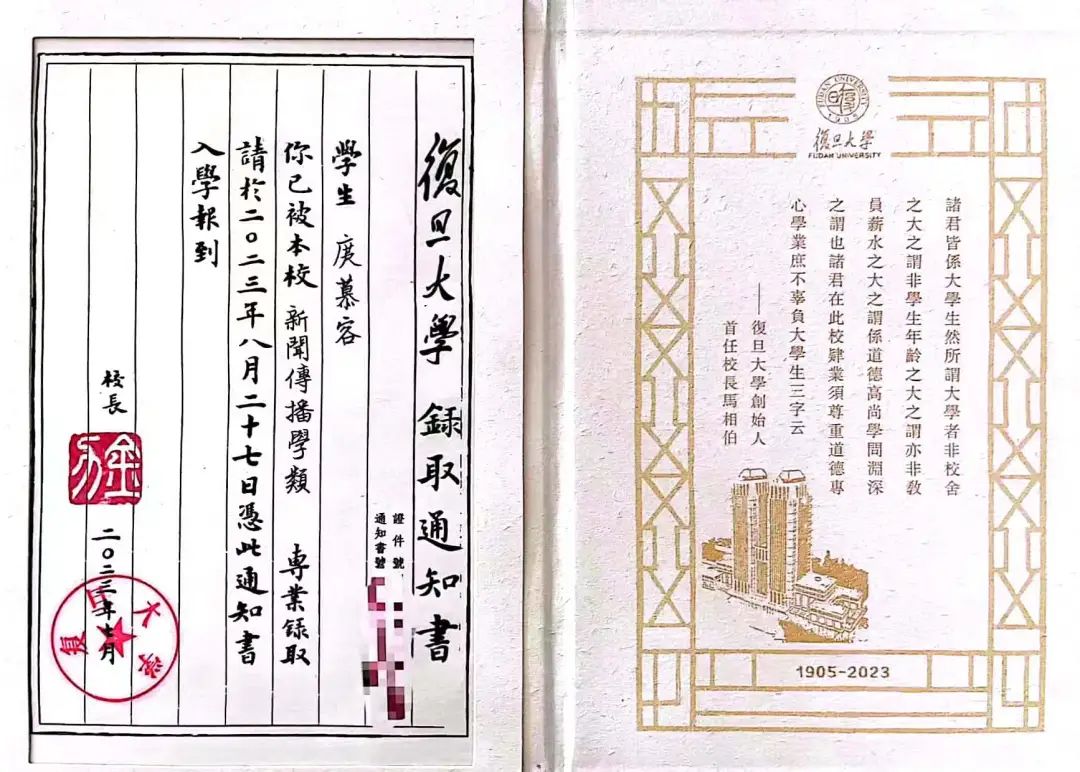 復旦大學 錄取通知書
證件號
通知書號
學生 慕容
你已被本校 新聞傳播學類 專業錄取
請於二〇二三年八月二十七日憑此通知書
入學報到
校長
金力
二〇二三年七月
復旦大學
FUDAN UNIVERSITY
1905
復旦大學
FUDAN UNIVERSITY
諸君皆係大學生然所謂大學者非校舍
之大之謂非學生年龄之大之謂亦非教
員薪水之大之謂係道德高尚學問淵深
之謂也諸君在此校肄業須尊重道德專
心學業庶不辜負大學生三字云
——復旦大學創始人
首任校長馬相伯
1905-2023